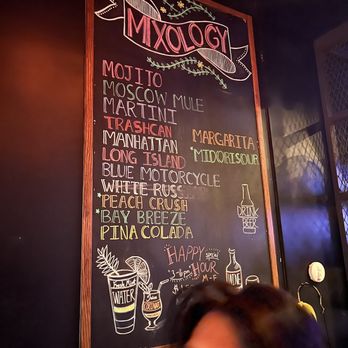 MIXOLOGY
MOJITO
MOSCOW MULE
MARTINI
TRASHCAN
MANHATTAN
LONG ISLAND
BLUE MOTORCYCLE
WHITE RUSS
*PEACH CRUSH
*BAY BREEZE
PINA COLADA
MARGARITA
*MIDORI SOUR
DRINK
BEER
HAPPY
HOUR
WATER
WINE